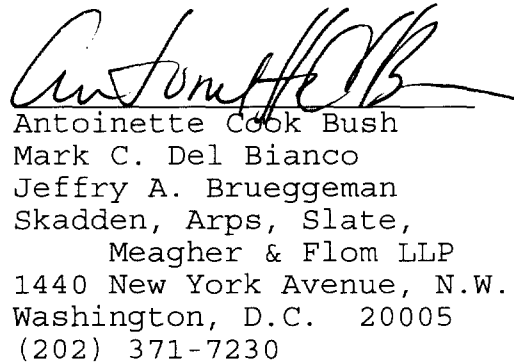 Antoinette C B
Antoinette Cook Bush
Mark C. Del Bianco
Jeffry A. Brueggeman
Skadden, Arps, Slate,
Meagher & Flom LLP
1440 New York Avenue, N.W.
Washington, D.C. 20005
(202) 371-7230